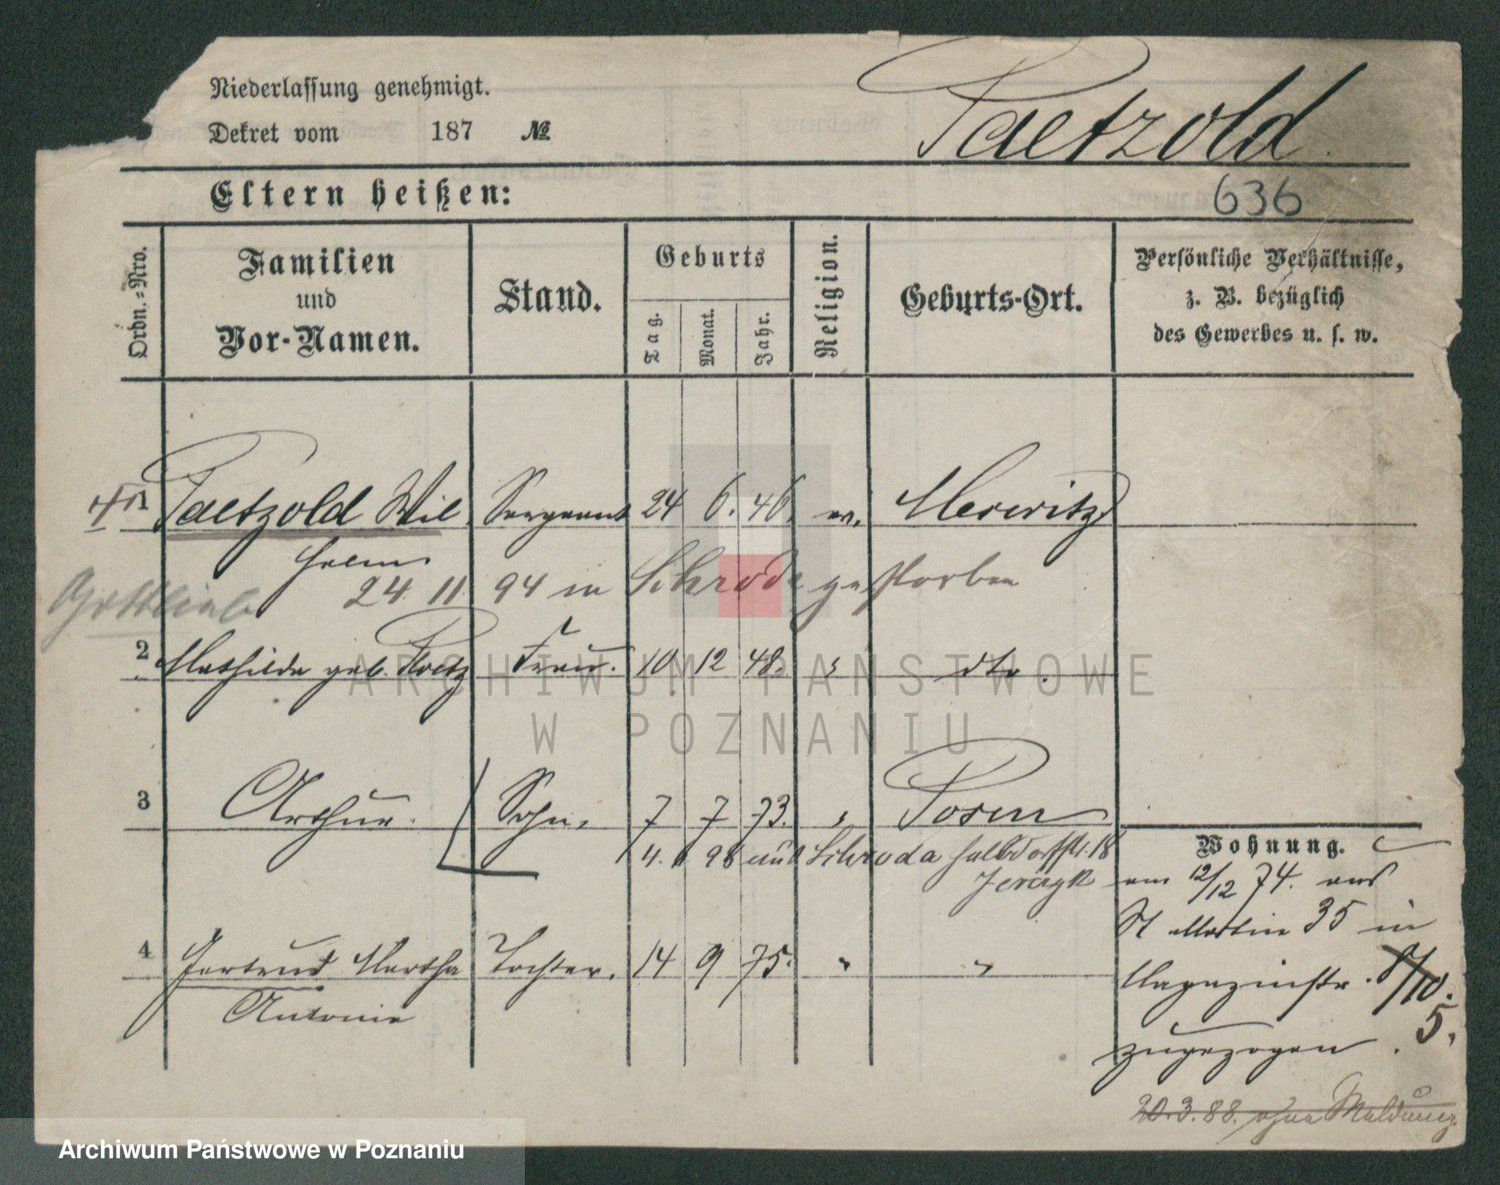 Niederlassung genehmigt.
Dekret vom 187 №
Paetzold
Eltern heißen:
636
Ordn.=Nro.
Familien
und
Vor-Namen.
Stand.
Geburts
Tag.
Monat.
Jahr.
Religion.
Geburts-Ort.
Persönliche Verhältnisse,
z. B. bezüglich
des Gewerbes u. s. w.
1 Paetzold Wil Sergeant 24 6. 46. ev.
helm
Gottlieb
24 11 94 in Schroda gestorben
2 Mathilde geb. Frau. 10 12 48. " dto.
3 Arthur. Sohn. 7 7 73. " Posen
4. 98 Schroda Halbdorfstr. 18
Jerzyk
4 Gertrud Martha Tochter. 14 9 75. " "
Antonie
Wohnung.
am 12/12 74. aus
St Martin 35 in
Magazinstr. 8/10.
5.
zugezogen.
20.3.88. ohne Meldung
ARCHIWUM PAŃSTWOWE
W POZNANIU
Archiwum Państwowe w Poznaniu